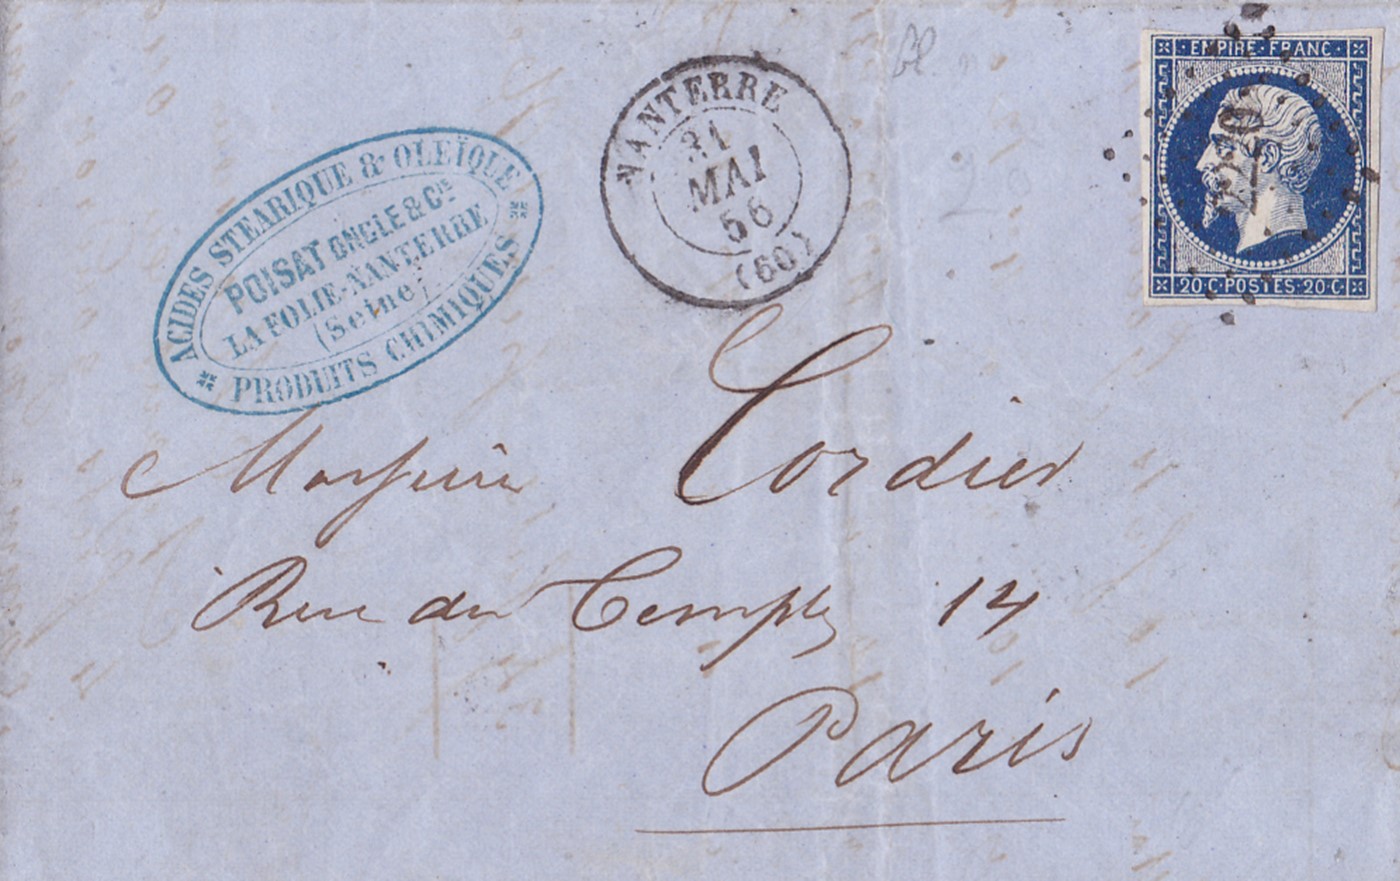 ACIDES STEARIQUE & OLEÏQUE
POISAT ONCLE & Cie
LA FOLIE-NANTERRE
(Seine)
PRODUITS CHIMIQUES
NANTERRE
31
MAI
56
(60)
EMPIRE FRANC
20 C · POSTES · 20 C
Monsieur Cordier
Rue du Temple 14
Paris